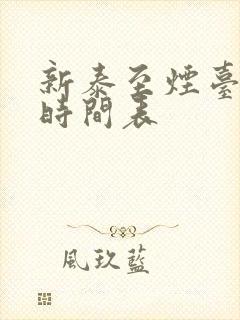 新泰至煙臺
時間表
風玖藍